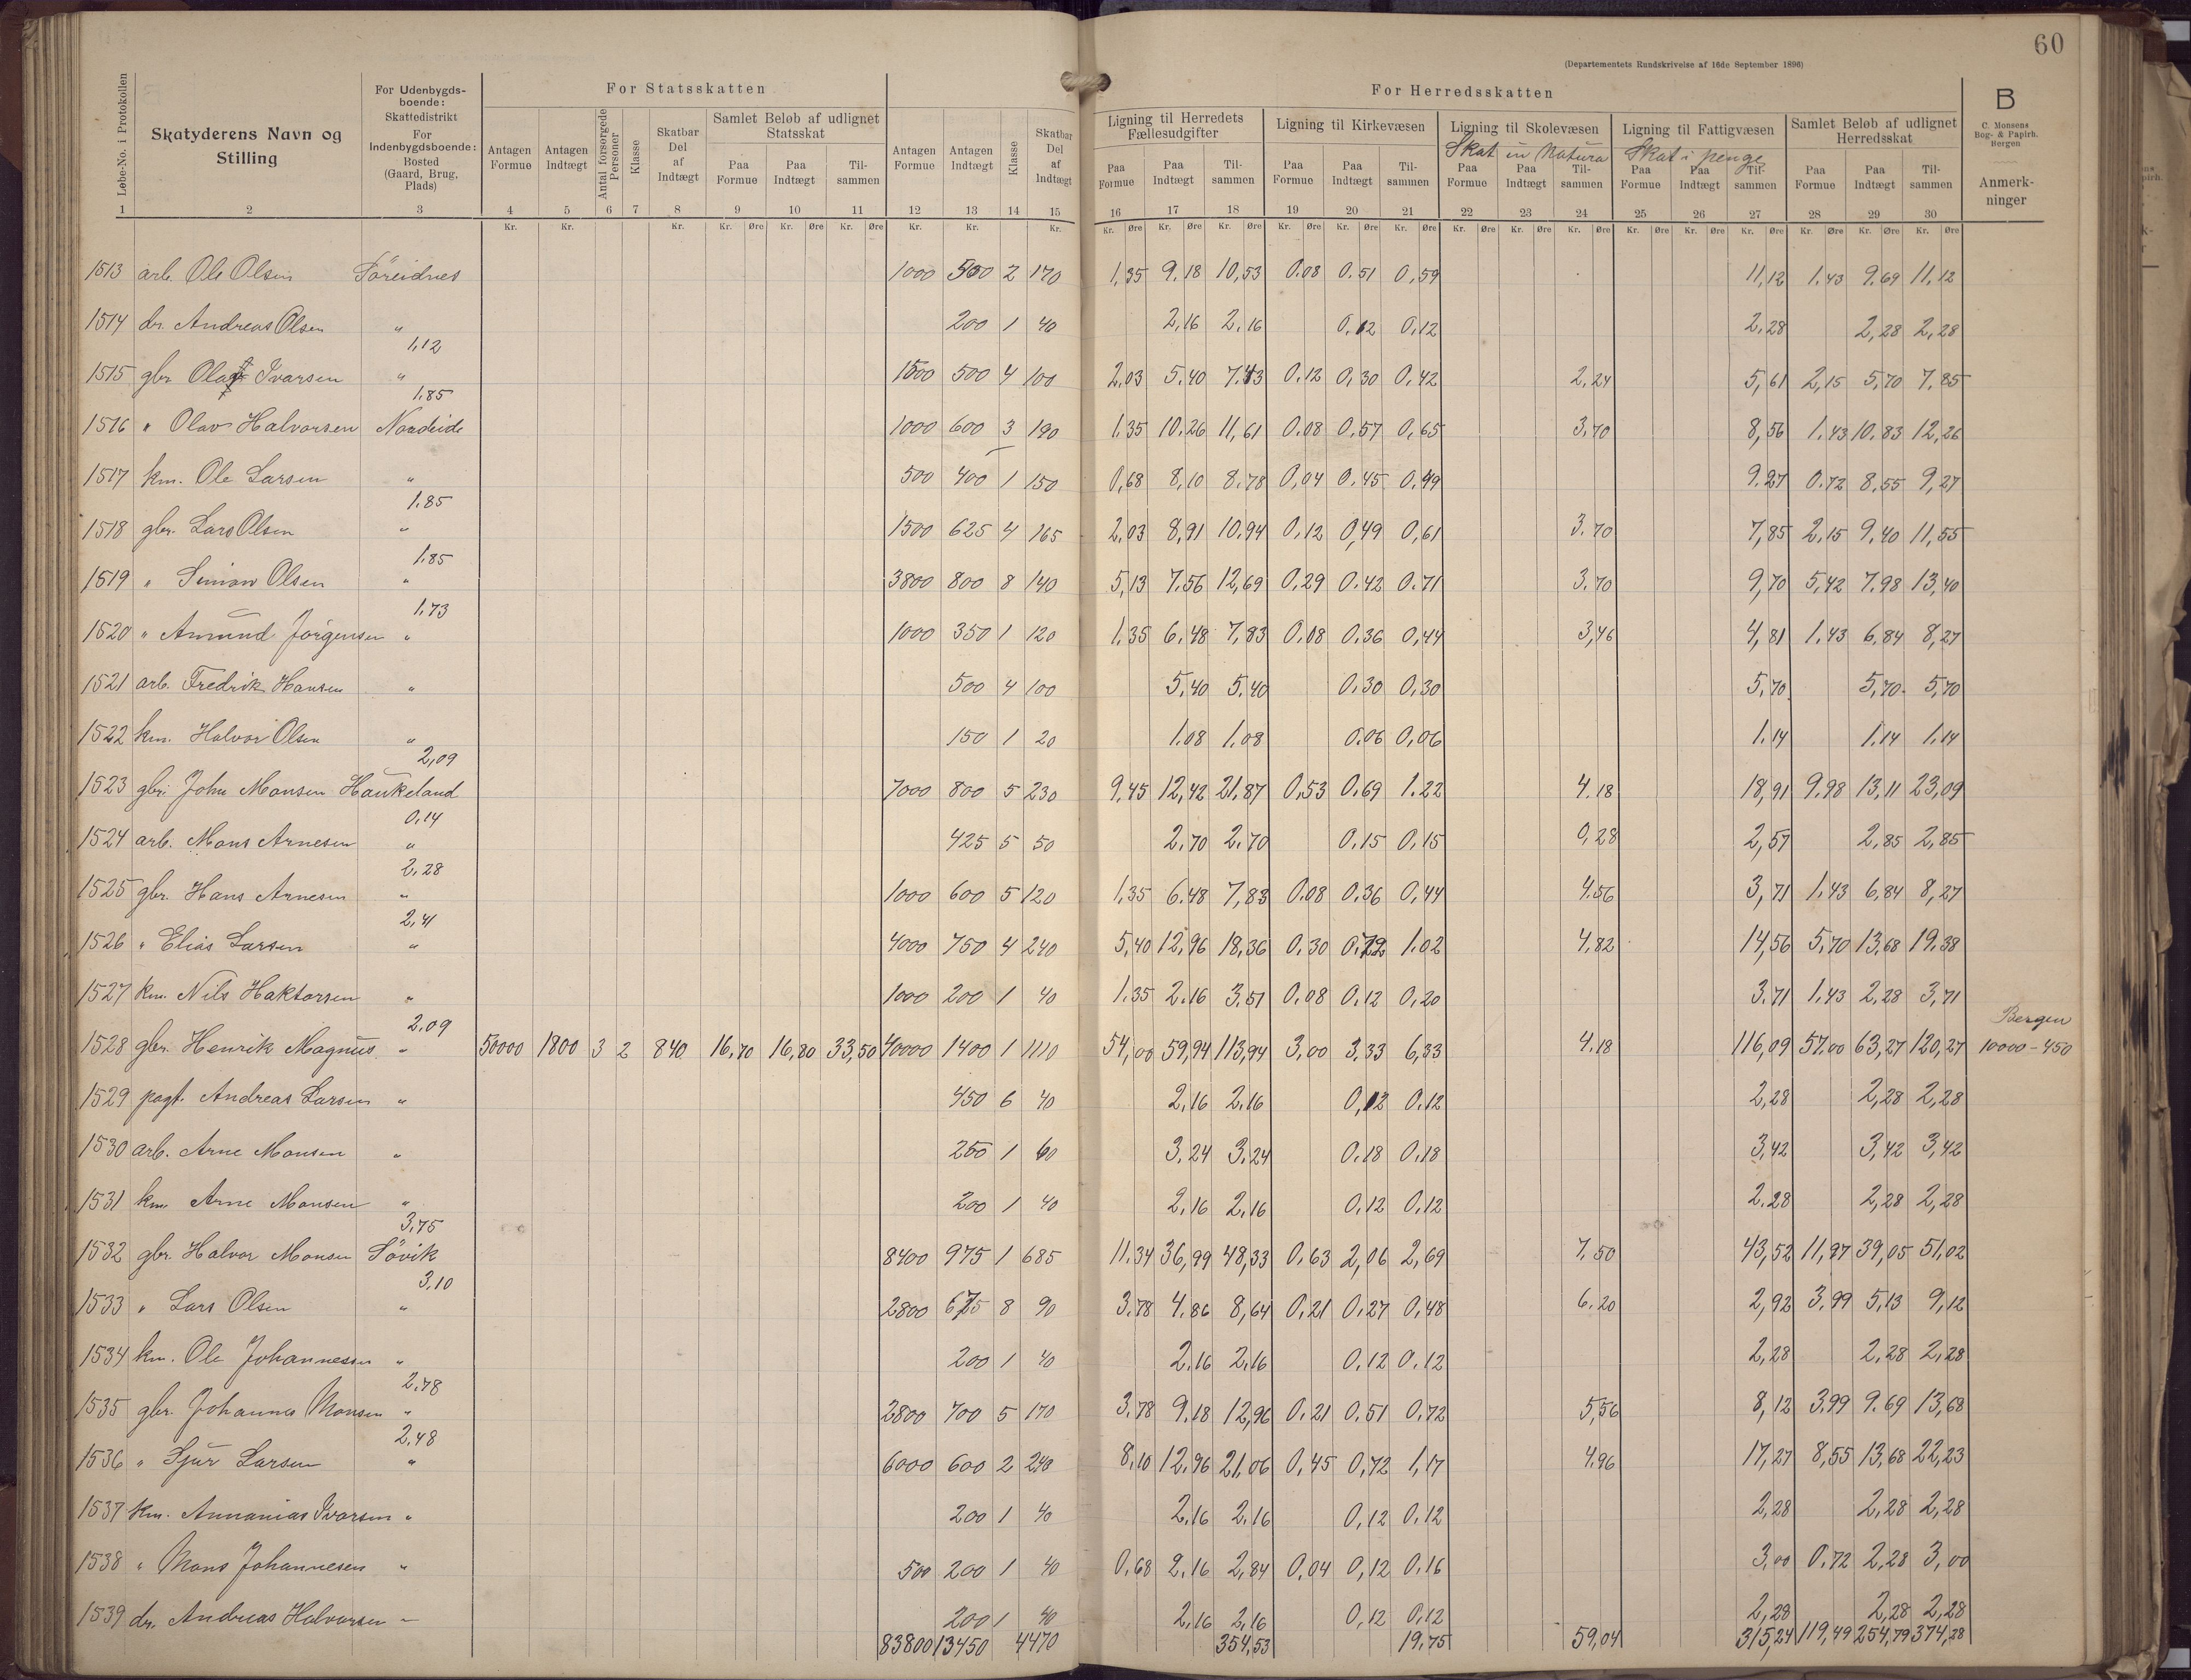 60
(Departementets Rundskrivelse af 16de September 1896)
Løbe-No. i Protokollen
Skatyderens Navn og Stilling
For Udenbygdsboende: Skattedistrikt
For Indenbygdsboende: Bosted (Gaard, Brug, Plads)
For Statsskatten
For Herredsskatten
B
C. Monsens Bog- & Papirh. Bergen
Anmerkninger
Antagen Formue
Antagen Indtægt
Antal forsørgede Personer
Klasse
Skatbar Del af Indtægt
Samlet Beløb af udlignet Statsskat
Paa Formue Paa Indtægt Tilsammen
Antagen Formue
Antagen Indtægt
Klasse
Skatbar Del af Indtægt
Ligning til Herredets Fællesudgifter
Paa Formue Paa Indtægt Tilsammen
Ligning til Kirkevæsen
Paa Formue Paa Indtægt Tilsammen
Ligning til Skolevæsen
Skat in Natura
Paa Formue Paa Indtægt Tilsammen
Ligning til Fattigvæsen
Skat i penge
Paa Formue Paa Indtægt Tilsammen
Samlet Beløb af udlignet Herredsskat
Paa Formue Paa Indtægt Tilsammen
1 2 3 4 5 6 7 8 9 10 11 12 13 14 15 16 17 18 19 20 21 22 23 24 25 26 27 28 29 30
1513 arb. Ole Olsen Söreidnes 1000 500 2 170 1,35 9.18 10,53 0.08 0.51 0,59 11,12 1.43 9.69 11,12
1514 dr. Andreas Olsen " 200 1 40 2,16 2,16 0,12 0,12 2,28 2,28 2,28
1,12
1515 gbr. Olaf Ivarsen " 1500 500 4 100 2,03 5.40 7.43 0.12 0,30 0,42 2,24 5,61 2,15 5,70 7,85
1.85
1516 " Olav Halvorsen Nordeide 1000 600 3 190 1.35 10.26 11,61 0.08 0.57 0,65 3.70 8,56 1.43 10.83 12,26
1517 km. Ole Larsen " 500 400 1 150 0,68 8,10 8.78 0,04 0.45 0,49 9.27 0.72 8.55 9,27
1.85
1518 gbr. Lars Olsen " 1500 625 4 165 2,03 8,91 10.94 0,12 0,49 0,61 3.70 7,85 2,15 9,40 11,55
1.85
1519 " Simon Olsen " 3800 800 8 140 5,13 7.56 12,69 0.29 0.42 0.71 3.70 9,70 5,42 7.98 13,40
1.73
1520 " Amund Jörgensen " 1000 350 1 120 1.35 6.48 7,83 0.08 0.36 0,44 3,46 4,81 1.43 6,84 8,27
1521 arb. Fredrik Hansen " 500 4 100 5,40 5,40 0,30 0,30 5,70 5,70 5,70
1522 km. Halvor Olsen " 150 1 20 1.08 1.08 0.06 0,06 1.14 1.14 1.14
2,09
1523 gbr. John Monsen Haukeland 7000 800 5 230 9,45 12,42 21.87 0,53 0.69 1.22 4.18 18,91 9.98 13,11 23,09
0,14
1524 arb. Mons Arnesen " 425 5 50 2,70 2.70 0.15 0,15 0,28 2,57 2,85 2,85
2,28
1525 gbr. Hans Arnesen " 1000 600 5 120 1,35 6.48 7,83 0.08 0.36 0,44 4.56 3,71 1.43 6,84 8,27
2,41
1526 " Elias Larsen " 4000 750 4 240 5,40 12,96 18,36 0,30 0,72 1.02 4,82 14,56 5,70 13,68 19,38
1527 km. Nils Haktorsen " 1000 200 1 40 1.35 2.16 3,51 0,08 0,12 0,20 3.71 1,43 2,28 3,71
2,09 Bergen
1528 gbr. Henrik Magnus " 50000 1800 3 2 840 16,70 16,80 33,50 40000 1400 1 1110 54,00 59,94 113,94 3,00 3,33 6,33 4.18 116,09 57.00 63,27 120,27 10000-450
1529 pagt. Andreas Larsen " 450 6 40 2,16 2,16 0,12 0.12 2,28 2,28 2,28
1530 arb. Arne Monsen " 250 1 60 3,24 3,24 0.18 0,18 3,42 3,42 3,42
1531 km. Arne Monsen " 200 1 40 2,16 2,16 0,12 0,12 2.28 2,28 2,28
3,75
1532 gbr. Halvor Monsen Sövik 8400 975 1 685 11.34 36,99 48,33 0,63 2,06 2,69 7,50 43,52 11,97 39,05 51,02
3,10
1533 " Lars Olsen " 2800 675 8 90 3.78 4.86 8,64 0,21 0,27 0,48 6.20 2,92 3,99 5,13 9,12
1534 km. Ole Johannesen " 200 1 40 2,16 2,16 0,12 0.12 2,28 2,28 2,28
2,78
1535 gbr. Johannes Monsen " 2800 700 5 170 3,78 9.18 12,96 0,21 0,51 0,72 5,56 8,12 3.99 9.69 13,68
2,48
1536 " Sjur Larsen " 6000 600 2 240 8,10 12,96 21,06 0,45 0,72 1,17 4,96 17,27 8,55 13,68 22,23
1537 km. Annanias Ivarsen " 200 1 40 2,16 2.16 0,12 0.12 2,28 2,28 2,28
1538 " Mons Johannesen " 500 200 1 40 0.68 2.16 2,84 0,04 0,12 0,16 3,00 0.72 2,28 3,00
1539 dr. Andreas Halvorsen " 200 1 40 2,16 2,16 0,12 0,12 2,28 2,28 2,28
83800 13450 4470 354,53 19,75 59,04 315,24 119,49 254,79 374,28